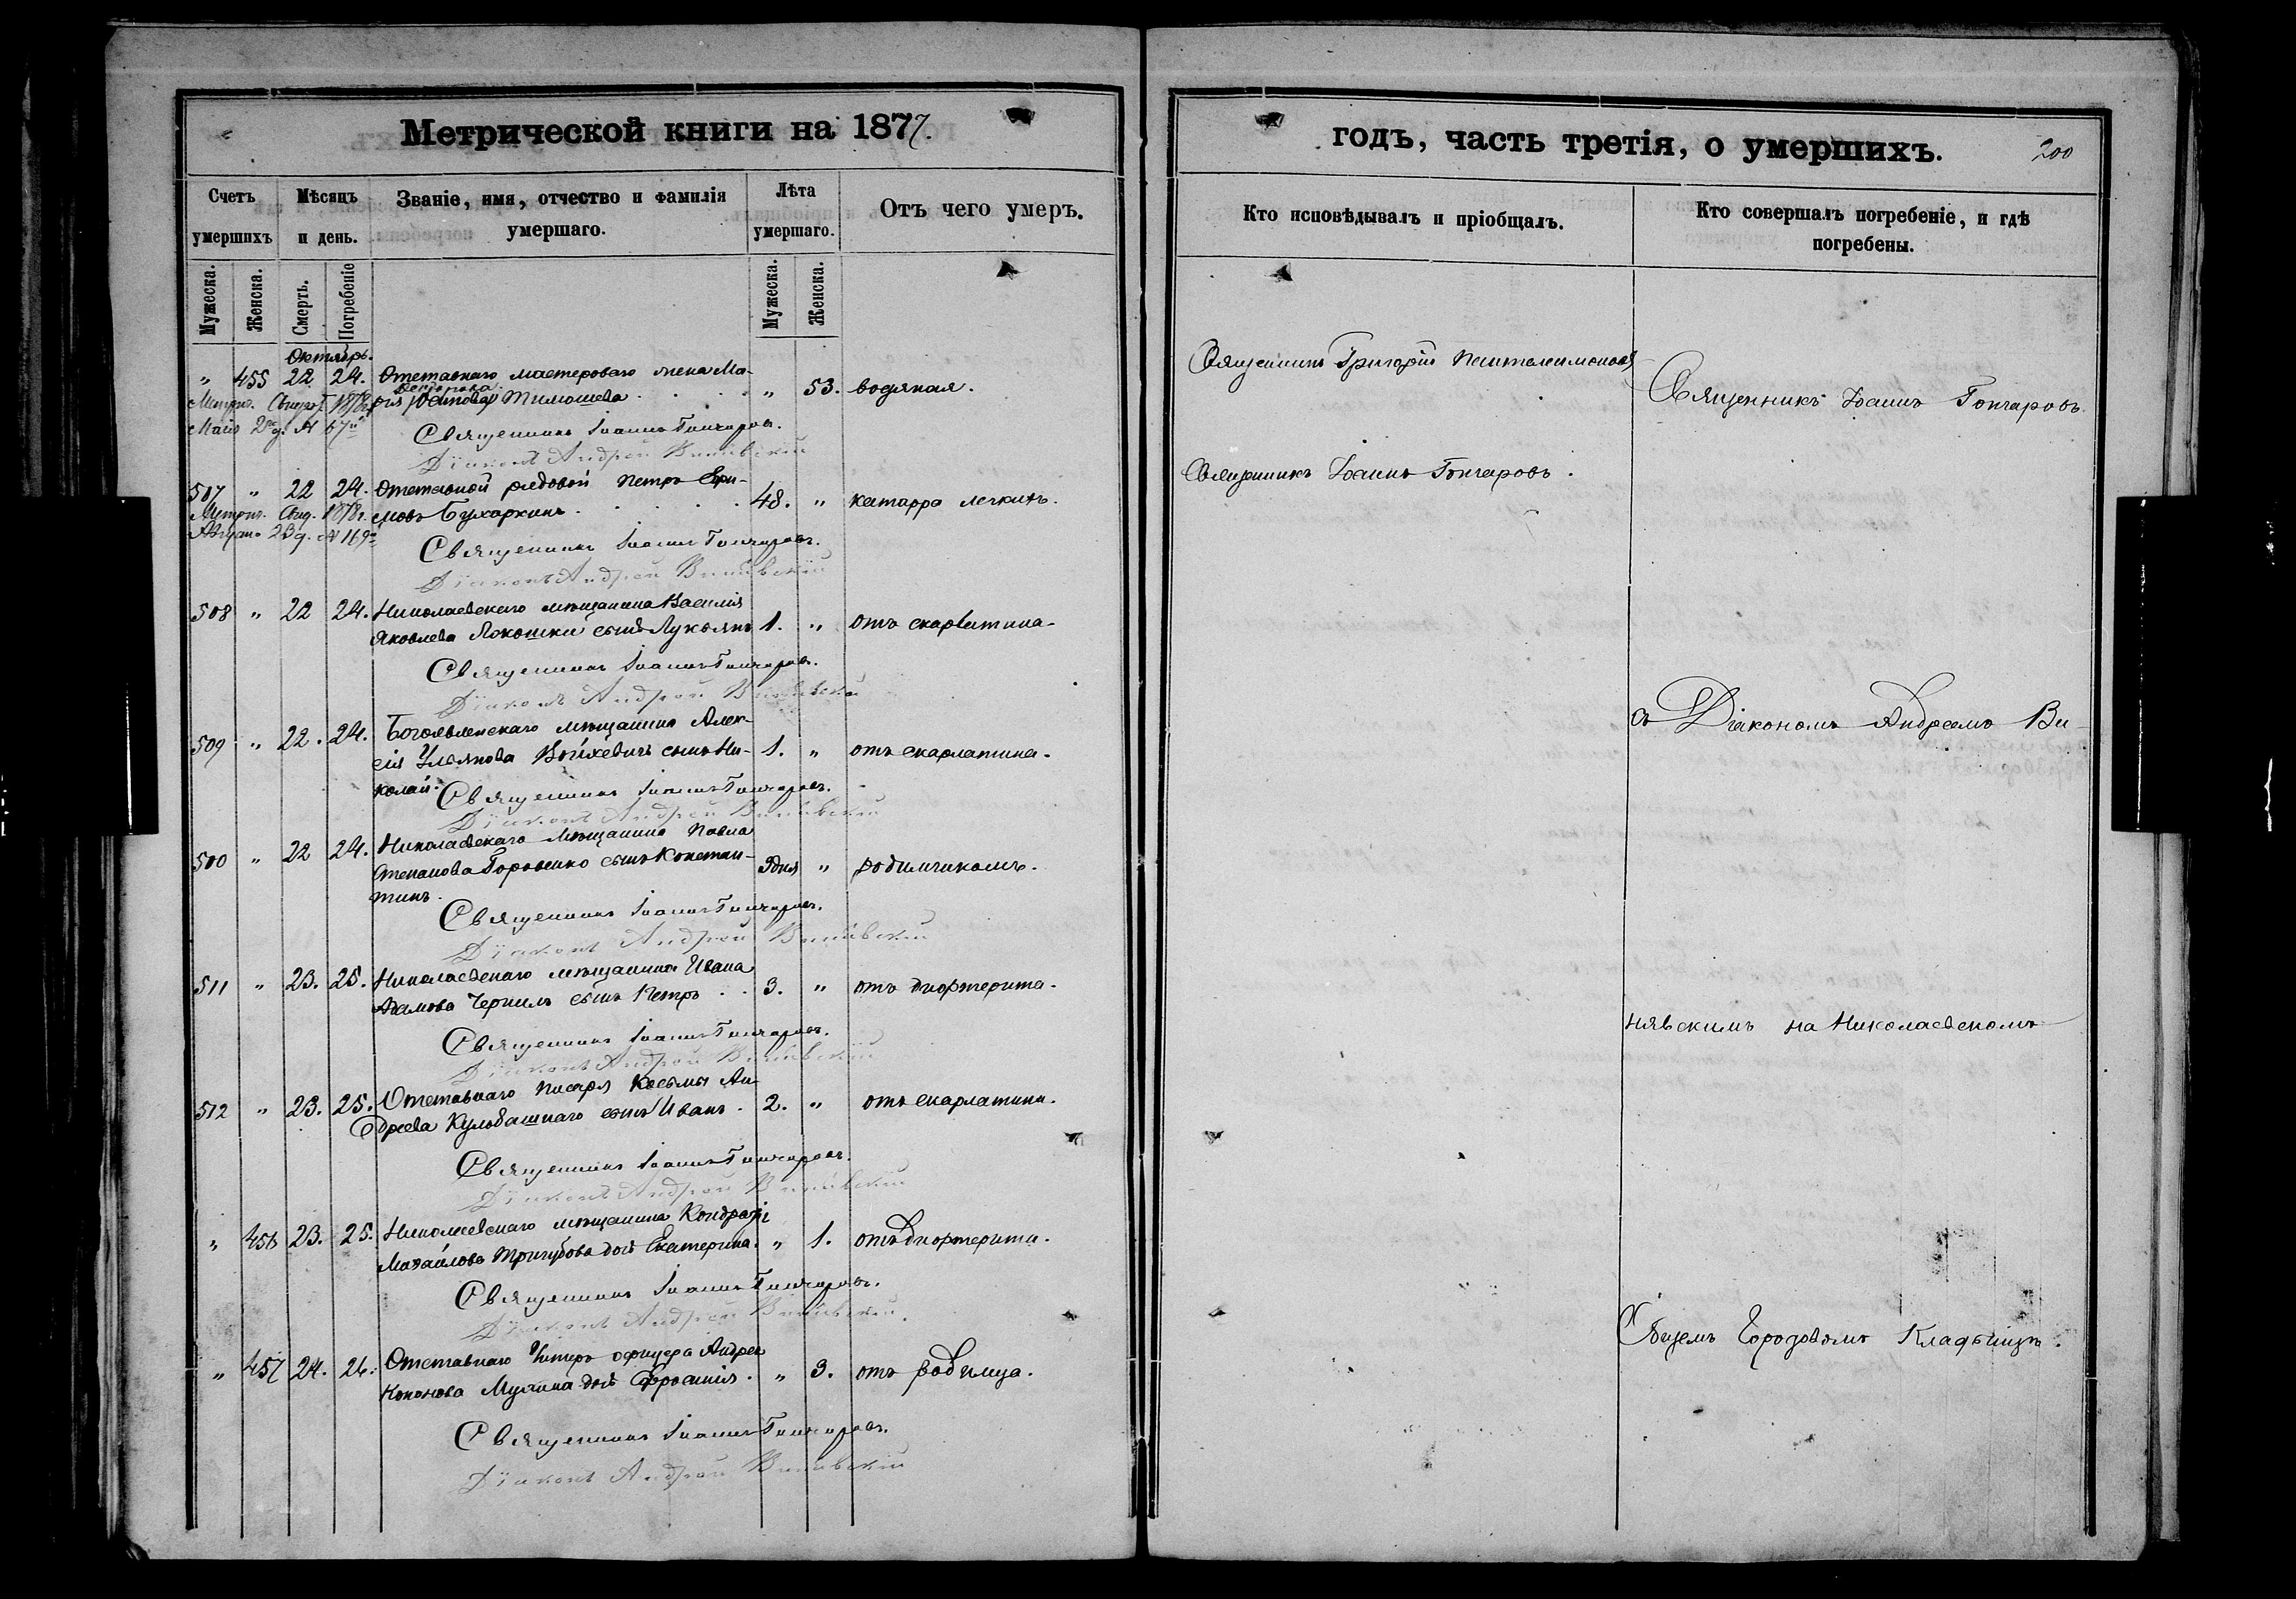 Метрической книги на 1877.
годъ, часть третія, о умершихъ.
200
Счетъ умершихъ
Мѣсяцъ и день.
Званіе, имя, отчество и фамилія умершаго.
Лѣта умершаго.
Отъ чего умеръ.
Кто исповѣдывалъ и пріобщалъ.
Кто совершалъ погребеніе, и гдѣ погребены.
Мужеска.
Женска.
Смерть.
Погребеніе
Мужеска.
Женска.
Октябрь.
" 455 22 24. Отставнаго мастероваго жена Ма-
Тимошева " 53. водяная.
Метрич. Свидѣт. 1878 г.
Маія 2 д. № 67
Священникъ Іоаннъ Гончаровъ.
Діаконъ Андрей Винявскій
507 " 22 24. Отставной рядовой Петръ Ефи-
мовъ Бухаркинъ 48. " катарра легкихъ.
Метрич. Свид. 1878 г.
23 д. № 169
Священникъ Іоаннъ Гончаровъ.
Діаконъ Андрей Винявскій
508 " 22 24. Николаевскаго мѣщанина Василія
Яковлева сынъ Лукъянъ 1. " отъ скарлатина.
Священникъ Іоаннъ Гончаровъ.
Діаконъ Андрей Винявскій
509 " 22. 24. Богоявленскаго мѣщанина Алек-
сія Ульянова Войхевичъ сынъ Ни- 1. " отъ скарлатина.
колай.
Священникъ Іоаннъ Гончаровъ.
Діаконъ Андрей Винявскій
500 " 22 24. Николаевскаго мѣщанина Павла
Степанова Горовенко сынъ Констан- 9 дня " родимчикомъ.
тинъ.
Священникъ Іоаннъ Гончаровъ.
Діаконъ Андрей Винявскій
511 " 23. 25. Николаевскаго мѣщанина Ивана
Адамова Чернилъ сынъ Петръ 3. " отъ дифтерита.
Священникъ Іоаннъ Гончаровъ.
Діаконъ Андрей Винявскій
512 " 23. 25. Отставнаго писаря Косьмы Ан-
дреева Кульбашнаго сынъ Иванъ. 2. " отъ скарлатини.
Священникъ Іоаннъ Гончаровъ.
Діаконъ Андрей Винявскій
" 456 23. 25. Николаевскаго мѣщанина Кондратія
Михайлова Тригубова дочь Екатерина. " 1. отъ дифтерита.
Священникъ Іоаннъ Гончаровъ.
Діаконъ Андрей Винявскій.
" 457 24. 26. Отставнаго Унтеръ офицера Андрея
Кононова дочь Ефросинія. " 3. отъ родимца.
Священникъ Іоаннъ Гончаровъ.
Діаконъ Андрей Винявскій
Священникъ Григорій Пантелеимоновъ
Священникъ Іоаннъ Гончаровъ.
Священникъ Іоаннъ Гончаровъ.
съ Діакономъ Андреемъ Ви-
нявскимъ на Николаевскомъ
Общемъ Городовомъ Кладбищѣ.